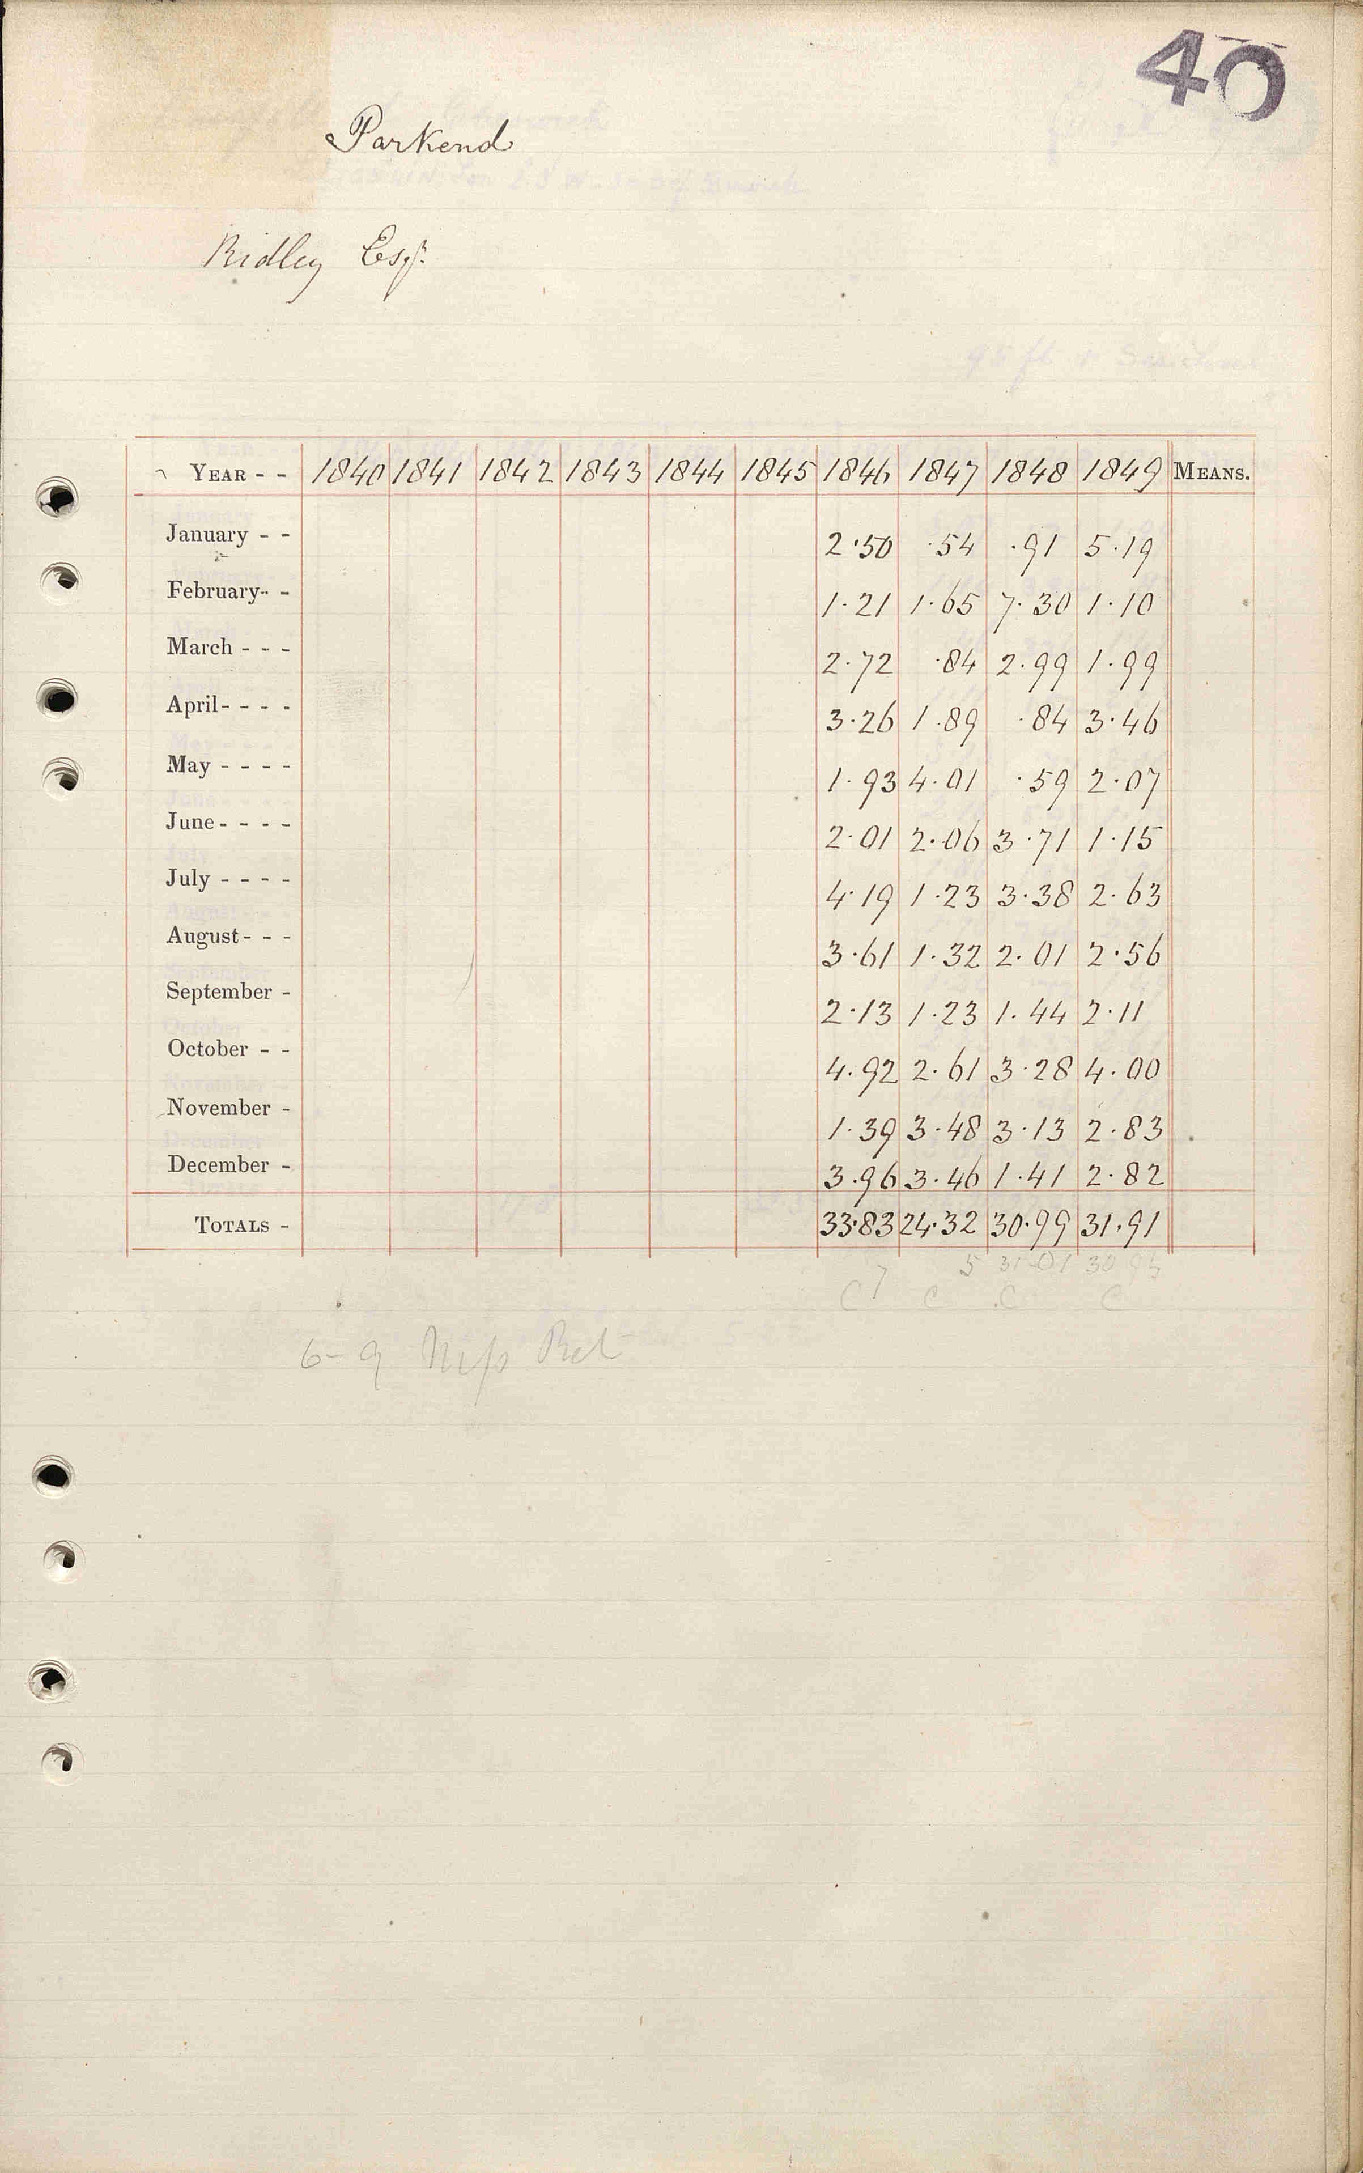 40
Parkend
Ridley Esqr.
YEAR - - 1840 1841 1842 1843 1844 1845 1846 1847 1848 1849 MEANS.
January - - 2.50 .54 .91 5.19
February - - 1.21 1.65 7.30 1.10
March - - - 2.72 .84 2.99 1.99
April - - - - 3.26 1.89 .84 3.46
May - - - - 1.93 4.01 .59 2.07
June - - - - 2.01 2.06 3.71 1.15
July - - - - 4.19 1.23 3.38 2.63
August - - - 3.61 1.32 2.01 2.56
September - 2.13 1.23 1.44 2.11
October - - 4.92 2.61 3.28 4.00
November - 1.39 3.48 3.13 2.83
December - 3.96 3.46 1.41 2.82
TOTALS - 33.83 24.32 30.99 31.91
5 31.01
C 7 C C C
6-9